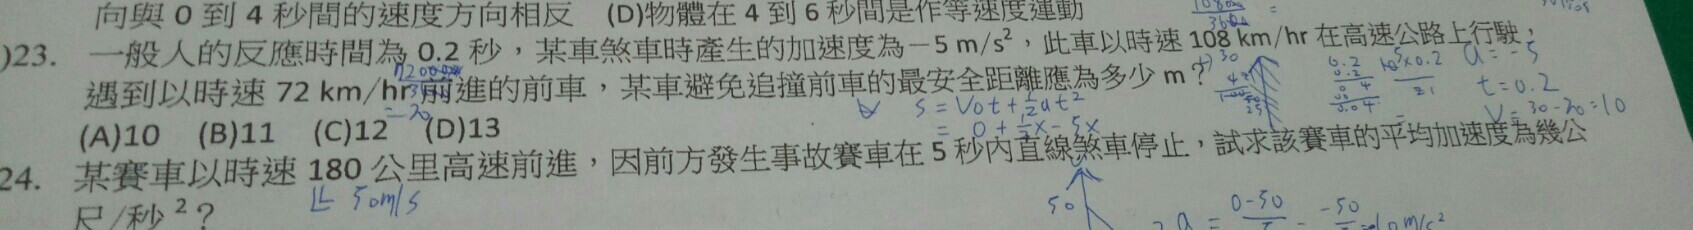 向與 0 到 4 秒間的速度方向相反 (D)物體在 4 到 6 秒間是作等速度運動
)23. 一般人的反應時間為 0.2 秒，某車煞車時產生的加速度為－5 m/s²，此車以時速 108 km/hr 在高速公路上行駛，
a = -5
遇到以時速 72 km/hr 前進的前車，某車避免追撞前車的最安全距離應為多少 m？
t = 0.2
S = V₀t + ½at²
V = 30 - 20 = 10
(A)10 (B)11 (C)12 (D)13
= 0 + ½ x - 5x
24. 某賽車以時速 180 公里高速前進，因前方發生事故賽車在 5 秒內直線煞車停止，試求該賽車的平均加速度為幾公
尺/秒²？
50 m/s
50
a = 0-50